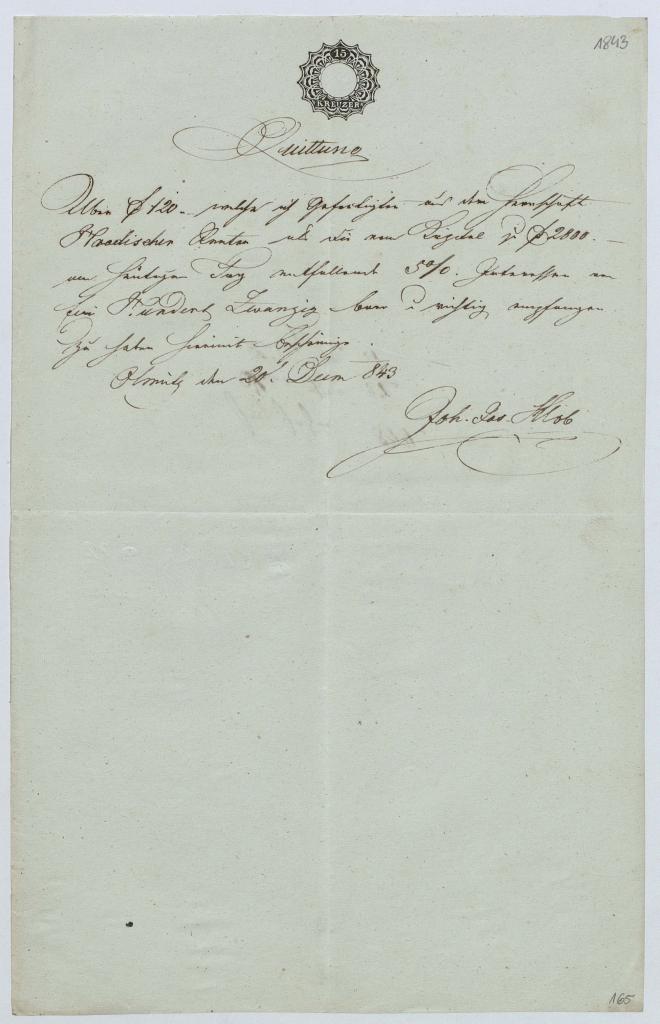 1843
15
KREUZER
Quittung
Über f 120 welche ich Gefertigter aus den Herrschaft
Hradischer Renten als die vom Kapital zu f 2800. —
am häutigen Tag entfallende 5%. Interessen von
Ein Hundert Zwanzig baar u richtig empfangen
zu haben hiemit bescheinige.
Olmütz den 20t Decem 843
Joh. Jos. Klob
165